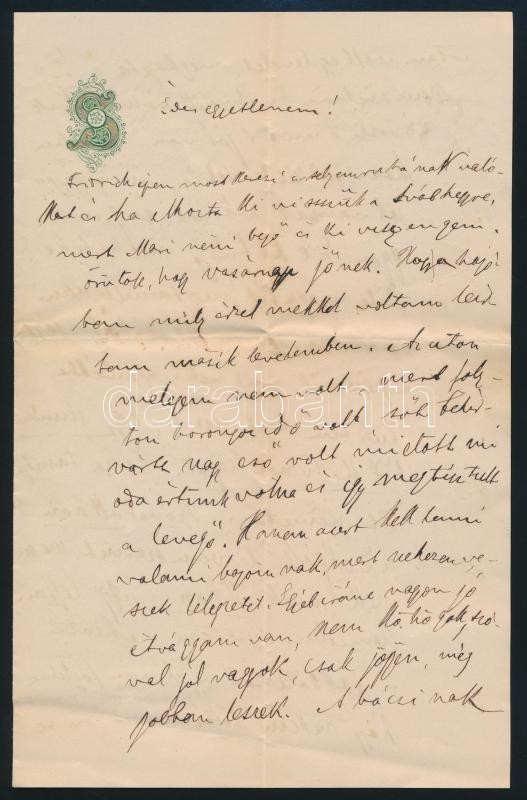 Édes egyetlenem!
Fridrich épen most készi a selyemruhának való-
kat és ha elhozta ki visszük a Svábhegyre,
mert Mari néni bejő és ki visz engem.
Örülök, hogy vasárnap jönek. Hogy a hajó
ban mily érzelmekkel voltam leír
tam másik levelemben. Az uton
melegem nem volt, mert foly
ton borongós idő volt, sőt Fehér
várt nagy eső volt mielőtt mi
oda értünk volna és így megtisztult
a levegő. Hanem azért kell lenni
valami bajomnak, mert nehezen ve-
szek lélegzetet. Egyébiránt nagyon jó
étvágyam van, nem köhögök, szó
val jól vagyok, csak jöjjön, még
jobban leszek. A bácsinak
darabanth